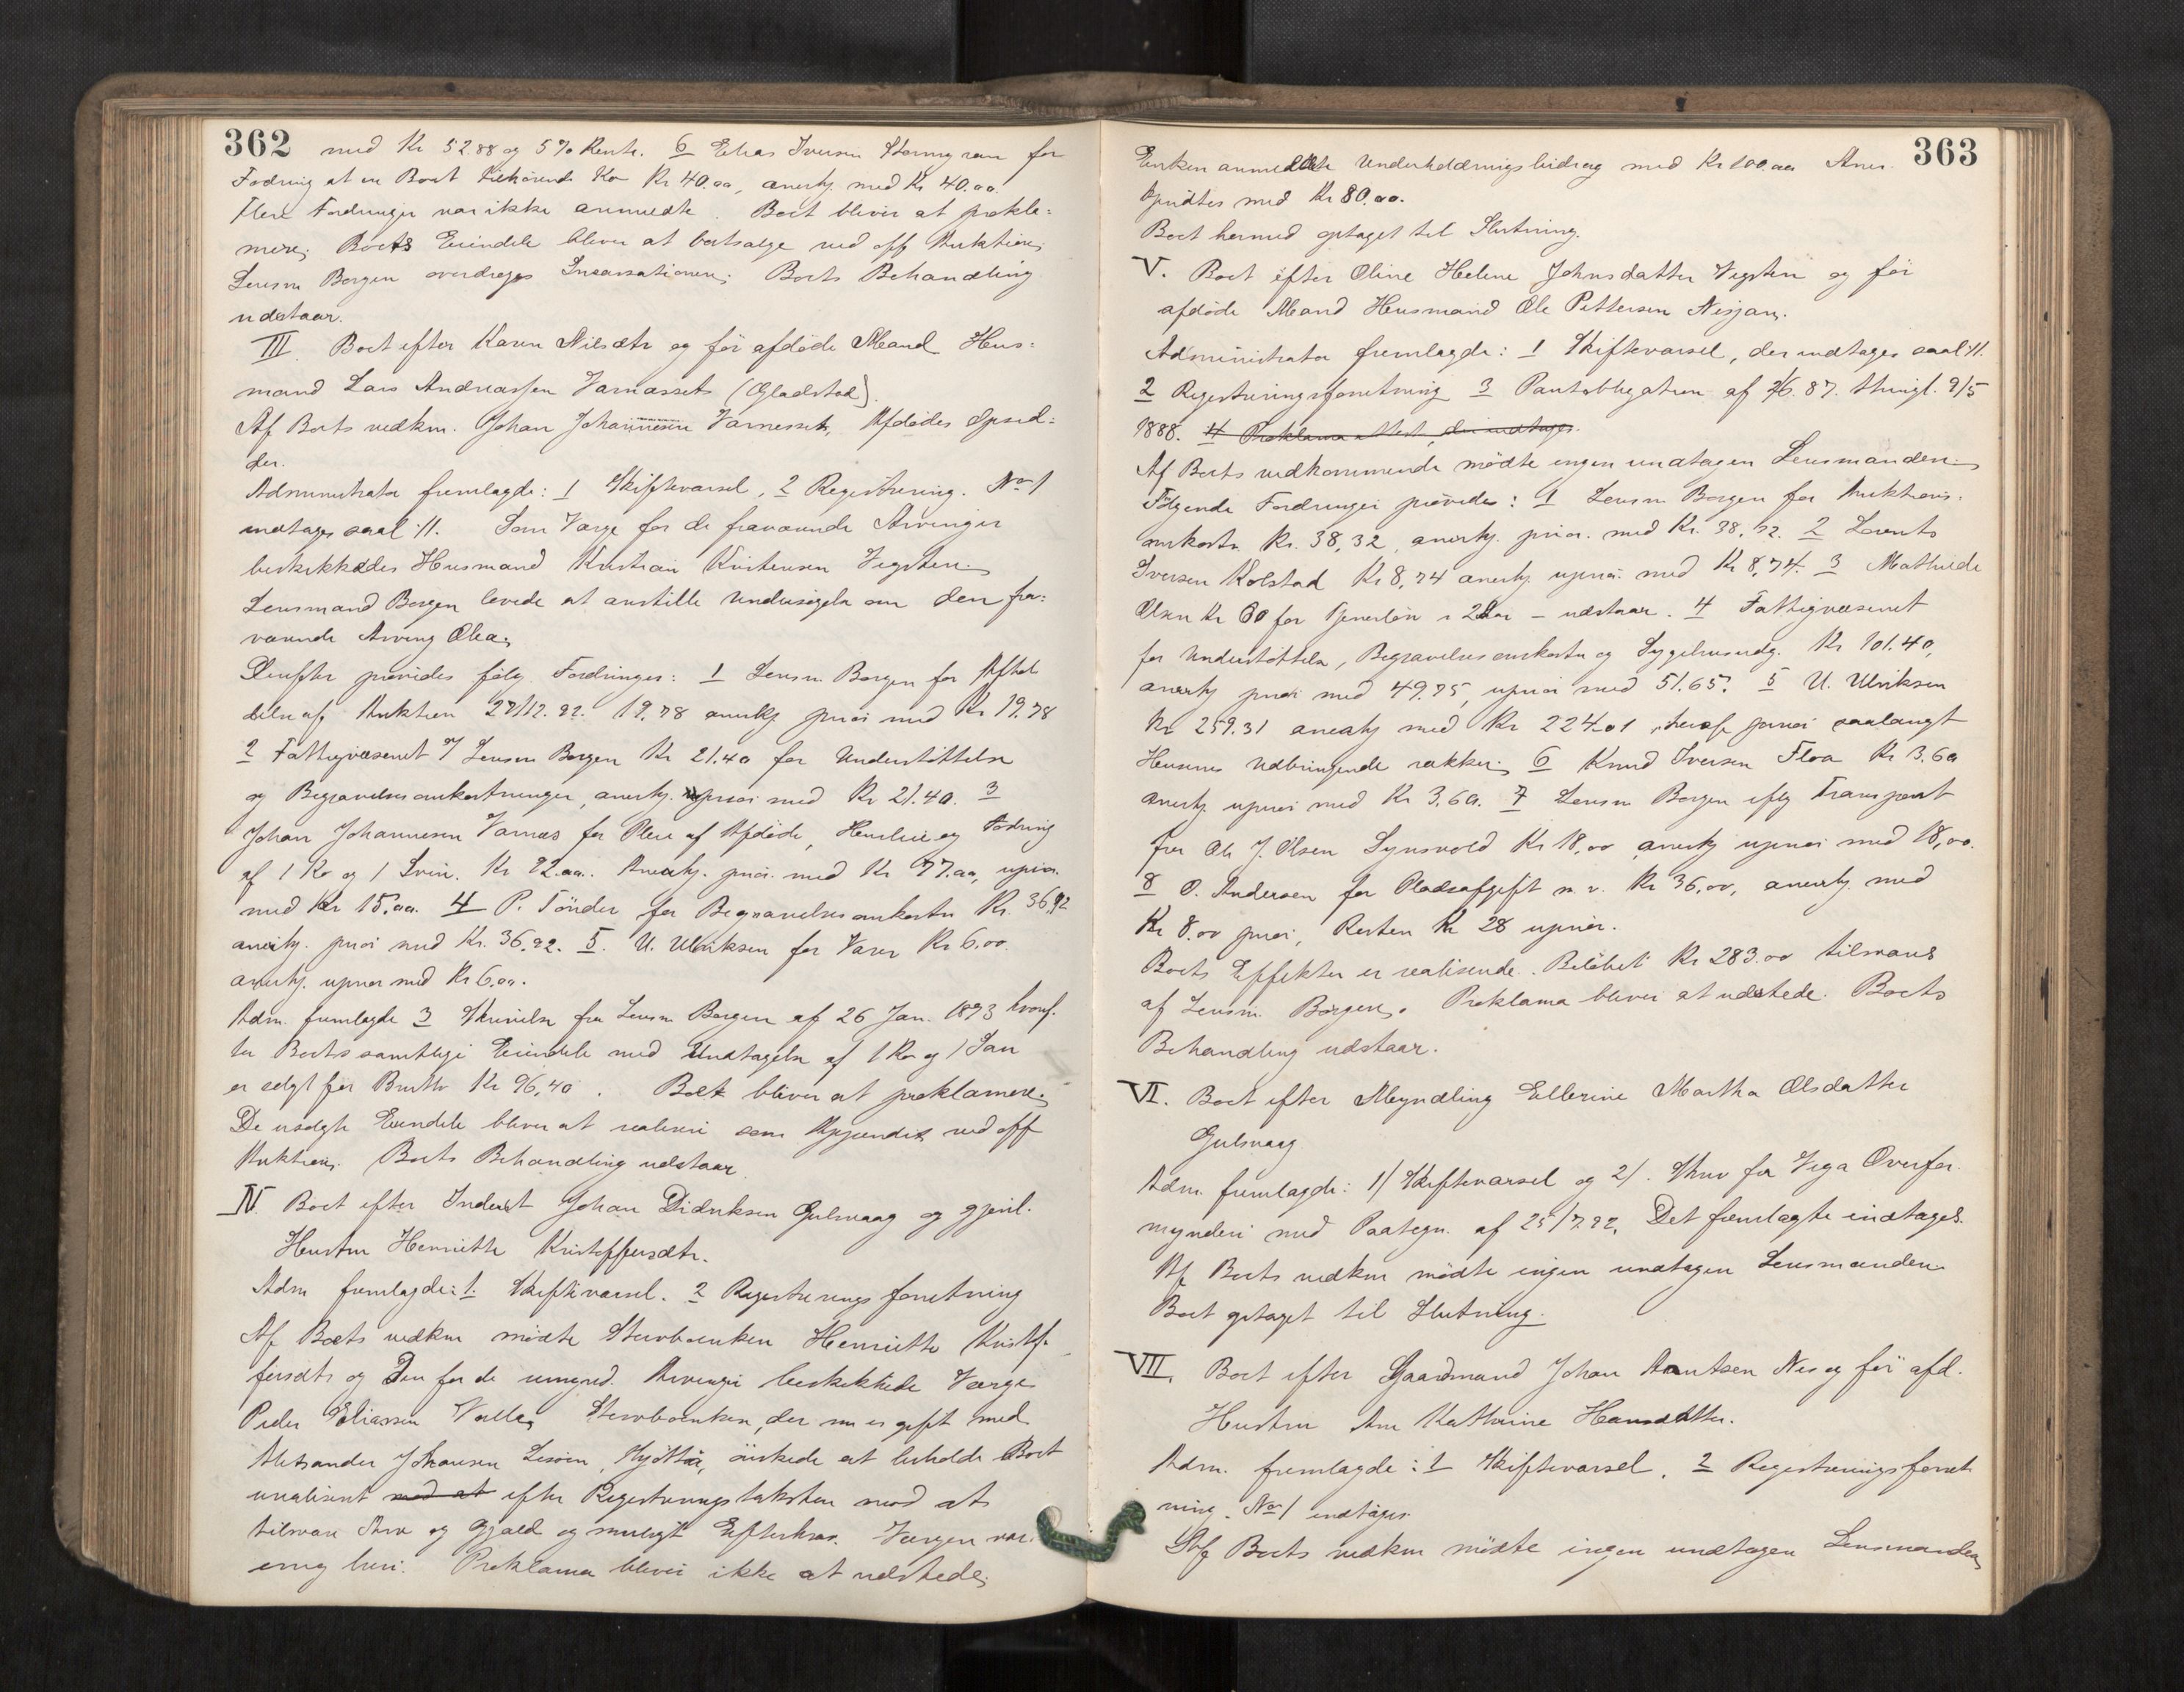 362
med Kr 52.88 og 5% Rente. 6 Elias Iversen for
Fodring af en Boet tilhørende Ko Kr 40.00, anerkj. med Kr 40.00.
Flere Fordringer var ikke anmeldte. Boet bliver at prokla-
mere. Boets Eiendele bliver at bortsælge ved off Auktion,
Lensm Borgen overdrages Incassationen. Boets Behandling
udstaar.
III. Boet efter Karen Nilsdtr og før afdøde Mand Hus-
mand Lars Andreassen Varnasset (Gladstad).
Af Boets vedkm. Johan Johannesen Varnesset, Afdødes Opsid-
der.
Administrator fremlagde: 1 Skiftevarsel, 2 Registrering. No 1
indtages saal: 11. Som Værge for de fraværende Arvinger
beskikkedes Husmand Kristian Kristensen Vegsten.
Lensmand Borgen lovede at anstille Undersøgelse om den fra-
værende Arving Olea.
Derefter prøvedes følg. Fordringer: 1 Lensm. Borgen for Afhol
delse af Auktion 27/12.92. 19.78 anerkj prior med Kr 19.78
2 Fattigvæsenet v/ Lensm Borgen Kr 21.40 for Understøttelse
og Begravelsesomkostninger, anerkj. uprior med Kr 21.40. 3
Johan Johannesen Varnæs for Pleie af Afdøde, Husleie og Fodring
af 1 Ko og 1 Svin. Kr 92.00. Anerkj. prior. med Kr 77.00, uprior.
med Kr 15.00. 4 P. Tønder for Begravelsesomkostn Kr. 36.92
anerkj. prior med Kr. 36.92. 5. U. Ulriksen for Varer Kr 6.00.
anerkj. uprior med Kr 6.00.
Adm. fremlagde 3 Skrivelse fra Lensm Borgen af 26 Jan. 1893 hvoref-
ter Boets samtlige Eiendele med Undtagelse af 1 Ko og 1 Sau
er solgt for Brutto Kr 96,40. Boet bliver at proklamere.
De usolgte Eiendele bliver at realisere som ved off
Auktion. Boets Behandling udstaar.
IV. Boet efter Inderst Johan Didriksen Gulsvaag og gjenl.
Hustru Henriette Kristoffersdtr.
Adm fremlagde: 1. Skiftevarsel. 2 Registreringsforretning
Af Boets vedkm mødte Stervboenken Henriette Kristof-
fersdtr og den for de umynd. Arvinger beskikkede Værge
Peder Eliassen Valla. Stervboenken, der nu er gift med
Aleksander Johansen, ønskede at beholde Boet
urealiseret med at efter Registreringstaksten mod at
tilsvare Arv og Gjæld og muligt Efterkrav. Værgen var
enig heri. Proklama bliver ikke at udstede.
363
Enken anmeldte Underholdningsbidrag med Kr 100.00 Aner.
Opnåtes med Kr 80.00.
Boet hermed optaget til Slutning.
V. Boet efter Oline Helene Johnsdatter Vegsten og før
afdøde Mand Husmand Ole Pettersen Nisjan.
Administrator fremlagde: 1 Skiftevarsel, der indtages saal: 11.
2 Registreringsforretning 3 Pantobligation af 7/6. 87. thingl. 9/5
1888. 4 Proklama attest, der indtages.
Af Boets vedkommende mødte ingen undtagen Lensmanden.
Følgende Fordringer prøvedes: 1 Lensm Borgen for Auktions-
omkostn. Kr. 38,32, anerkj. prior. med Kr. 38,32. 2 Lorents
Iversen Kolstad Kr 8,74 anerkj. uprior. med Kr 8,74. 3 Mathilde
Olsen Kr 60 for Tjenerløn i 2 Aar – udstaar. 4 Fattigvæsenet
for Understøttelse, Begravelsesomkostn og Sygehusudg. Kr 101.40,
anerkj prior med 49.75, uprior med 51.65. 5 U. Ulriksen
Kr 259.31 anerkj med Kr 224.01, heraf prior saalangt
Husenes Udbringende rækker. 6 Knud Iversen Floa Kr 3.60
anerkj. uprior med Kr 3.60. 7 Lensm Borgen iflg Transport
fra Ole J. Olsen Kr 18,00 anerkj uprior med 18,00.
8 O. Andersen for Pladsafgift m. v. Kr 36.00, anerkj. med
Kr 8.00 prior, Resten Kr 28 uprior.
Boets Effekter er realiserede. Beløbet Kr 283.00 tilsvares
af Lensm. Borgen. Proklama bliver at udstede. Boets
Behandling udstaar.
VI. Boet efter Myndling Ellerine Martha Olsdatter
Gulsvaag
Adm. fremlagde: 1/ Skiftevarsel og 2/. Skriv fra Vega Overfor-
mynderi med Paategn. af 25/7.92. Det fremlagte indtages.
Af Boets vedkm mødte ingen undtagen Lensmanden.
Boet optaget til Slutning.
VII. Boet efter Gaardmand Johan Arntsen Nes og før afd.
Hustru Ane Kathrine Hansdatter.
Adm. fremlagde: 1 Skiftevarsel, 2 Registreringsforret-
ning. No 1 indtages
Af Boets vedkm mødte ingen undtagen Lensmanden